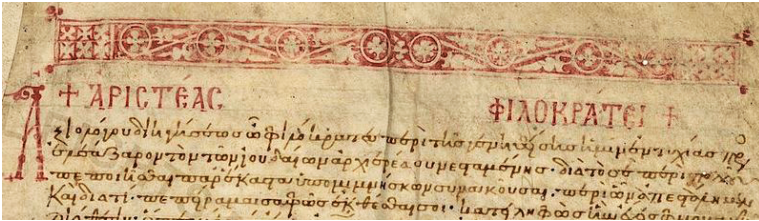 + ἈΡΙСΤΈΑС ΦΙΛΟΚΡΆΤΕΙ +
Ἀξιολόγου διηγήσεως ὦ φιλόκρατες περὶ τῆς γενηθείσης ἡμῖν ἐντυχίας πρὸς
ἐλεάζαρον τὸν τῶν ἰουδαίων ἀρχιερέα συνεσταμένης· διὰ τὸ σὲ περὶ πολλοῦ
πεποιῆσθαι παρ' ἕκαστα ὑπομιμνήσκων συνακοῦσαι· περὶ ὧν ἀπεστάλημεν
Καὶ διὰ τί· πεπείραμαι σαφῶς ἐκθέσθαι σοι· κατειληφὼς ἣν ἔχεις